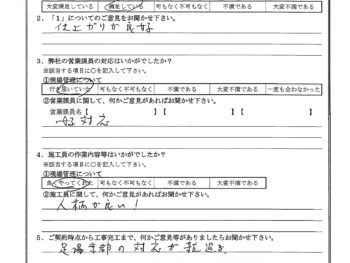 大変満足している 満足している 可もなく不可もなく 不満である 大変不満である
2．「1」についてのご意見をお聞かせ下さい。
仕上がりが良好
3．弊社の営業課員の対応はいかがでしたか？
※該当する項目に○を記入して下さい。
①現場管理について
行き届いていた 可もなく不可もなく 不満である 大変不満である 一度も会わなかった
②営業課員に関して、何かご意見があればお聞かせ下さい。
営業課員名【 】【 】【 】
対応
4．施工員の作業内容等はいかがでしたか？
※該当する項目に○を記入して下さい。
①現場管理について
良くやってくれた 可もなく不可もなく 不満である 大変不満である
②施工員に関して、何かご意見があればお聞かせ下さい。
人柄が良い！
5．ご契約時点から工事完工まで、何かご意見等がありましたらお聞かせ下さい。
足場 の対応が